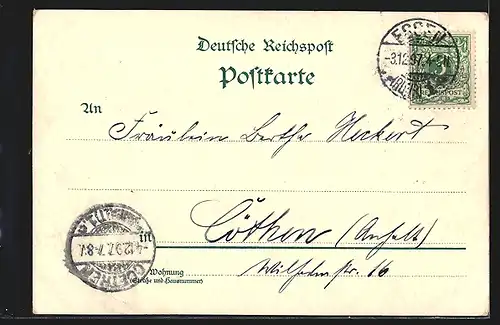 Deutsche Reichspost
Postkarte
ESSEN
-3.12.97.
An
Fräulein Berthe Heckert
in Cöthen (Anhalt)
Wilhelmstr. 16
Wohnung
(Straße und Hausnummer)
COETHEN
-4.12.97. 7-8V.